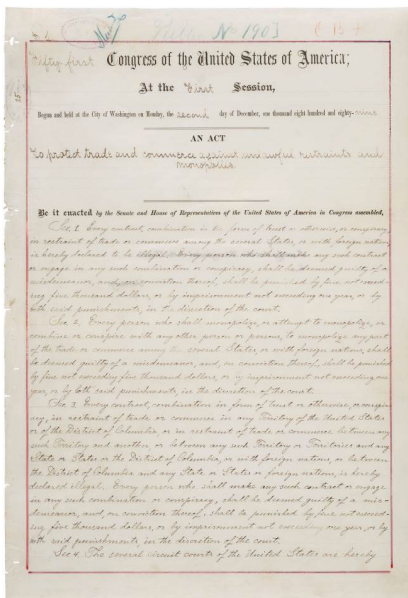 No 1903
Fifty-first Congress of the United States of America;
At the First Session,
Begun and held at the City of Washington on Monday, the second day of December, one thousand eight hundred and eighty-nine.
AN ACT
To protect trade and commerce against unlawful restraints and
monopolies.
Be it enacted by the Senate and House of Representatives of the United States of America in Congress assembled,
Sec. 1. Every contract, combination in the form of trust or otherwise, or conspiracy,
in restraint of trade or commerce among the several States, or with foreign nations,
is hereby declared to be illegal. Every person who shall make any such contract
or engage in any such combination or conspiracy, shall be deemed guilty of a
misdemeanor, and, on conviction thereof, shall be punished by fine not exceed-
ing five thousand dollars, or by imprisonment not exceeding one year, or by
both said punishments, in the discretion of the court.
Sec. 2. Every person who shall monopolize, or attempt to monopolize, or
combine or conspire with any other person or persons, to monopolize any part
of the trade or commerce among the several States, or with foreign nations, shall
be deemed guilty of a misdemeanor, and, on conviction thereof, shall be punished
by fine not exceeding five thousand dollars, or by imprisonment not exceeding one
year, or by both said punishments, in the discretion of the court.
Sec. 3. Every contract, combination in form of trust or otherwise, or conspir-
acy, in restraint of trade or commerce in any Territory of the United States
or of the District of Columbia, or in restraint of trade or commerce between any
such Territory and another, or between any such Territory or Territories and any
State or States or the District of Columbia, or with foreign nations, or between
the District of Columbia and any State or States or foreign nations, is hereby
declared illegal. Every person who shall make any such contract or engage
in any such combination or conspiracy, shall be deemed guilty of a mis-
demeanor, and, on conviction thereof, shall be punished by fine not exceed-
ing five thousand dollars, or by imprisonment not exceeding one year, or by
both said punishments, in the discretion of the court.
Sec. 4. The several circuit courts of the United States are hereby